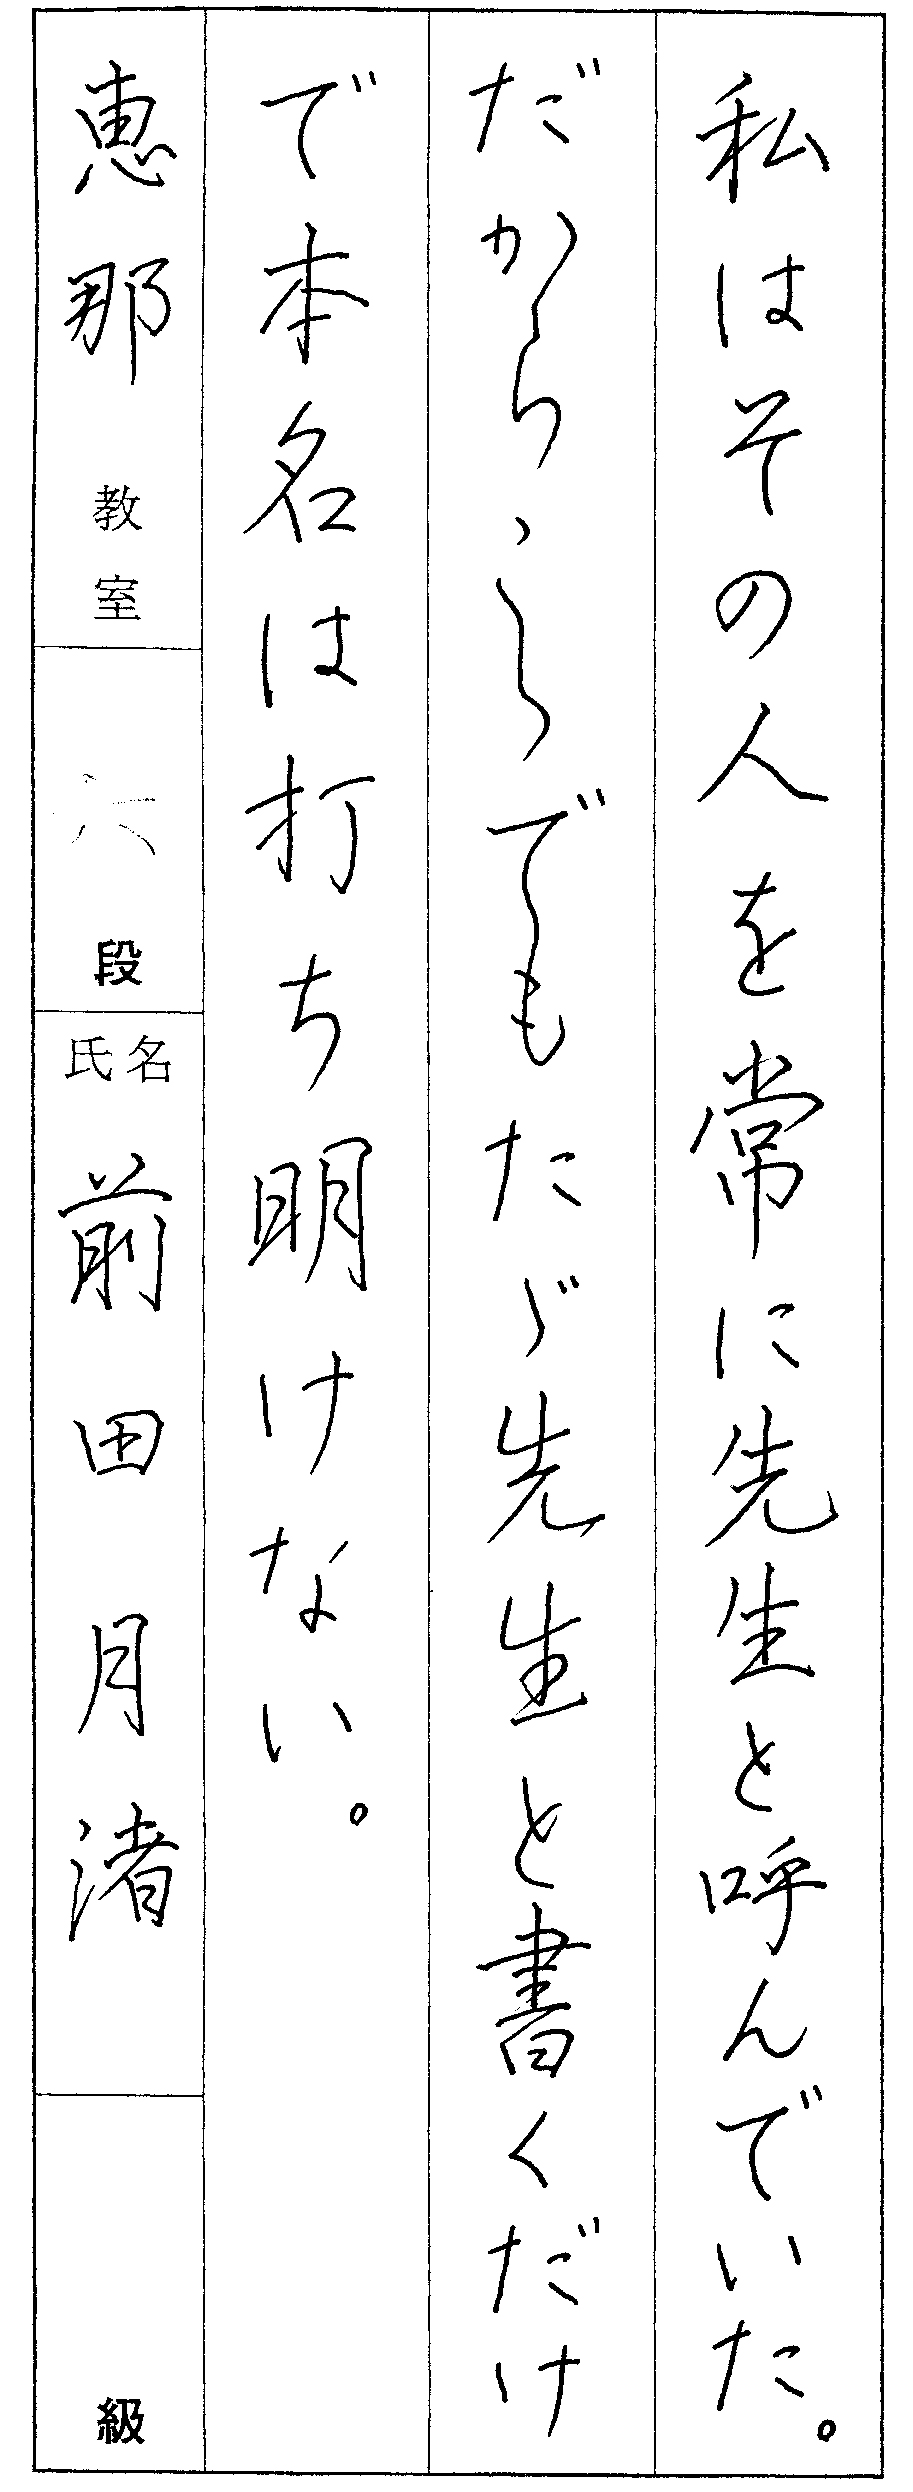 私はその人を常に先生と呼んでいた。
だからこゝでもたゞ先生と書くだけ
で本名は打ち明けない。
恵那教室
六段
氏名 前田月渚
級